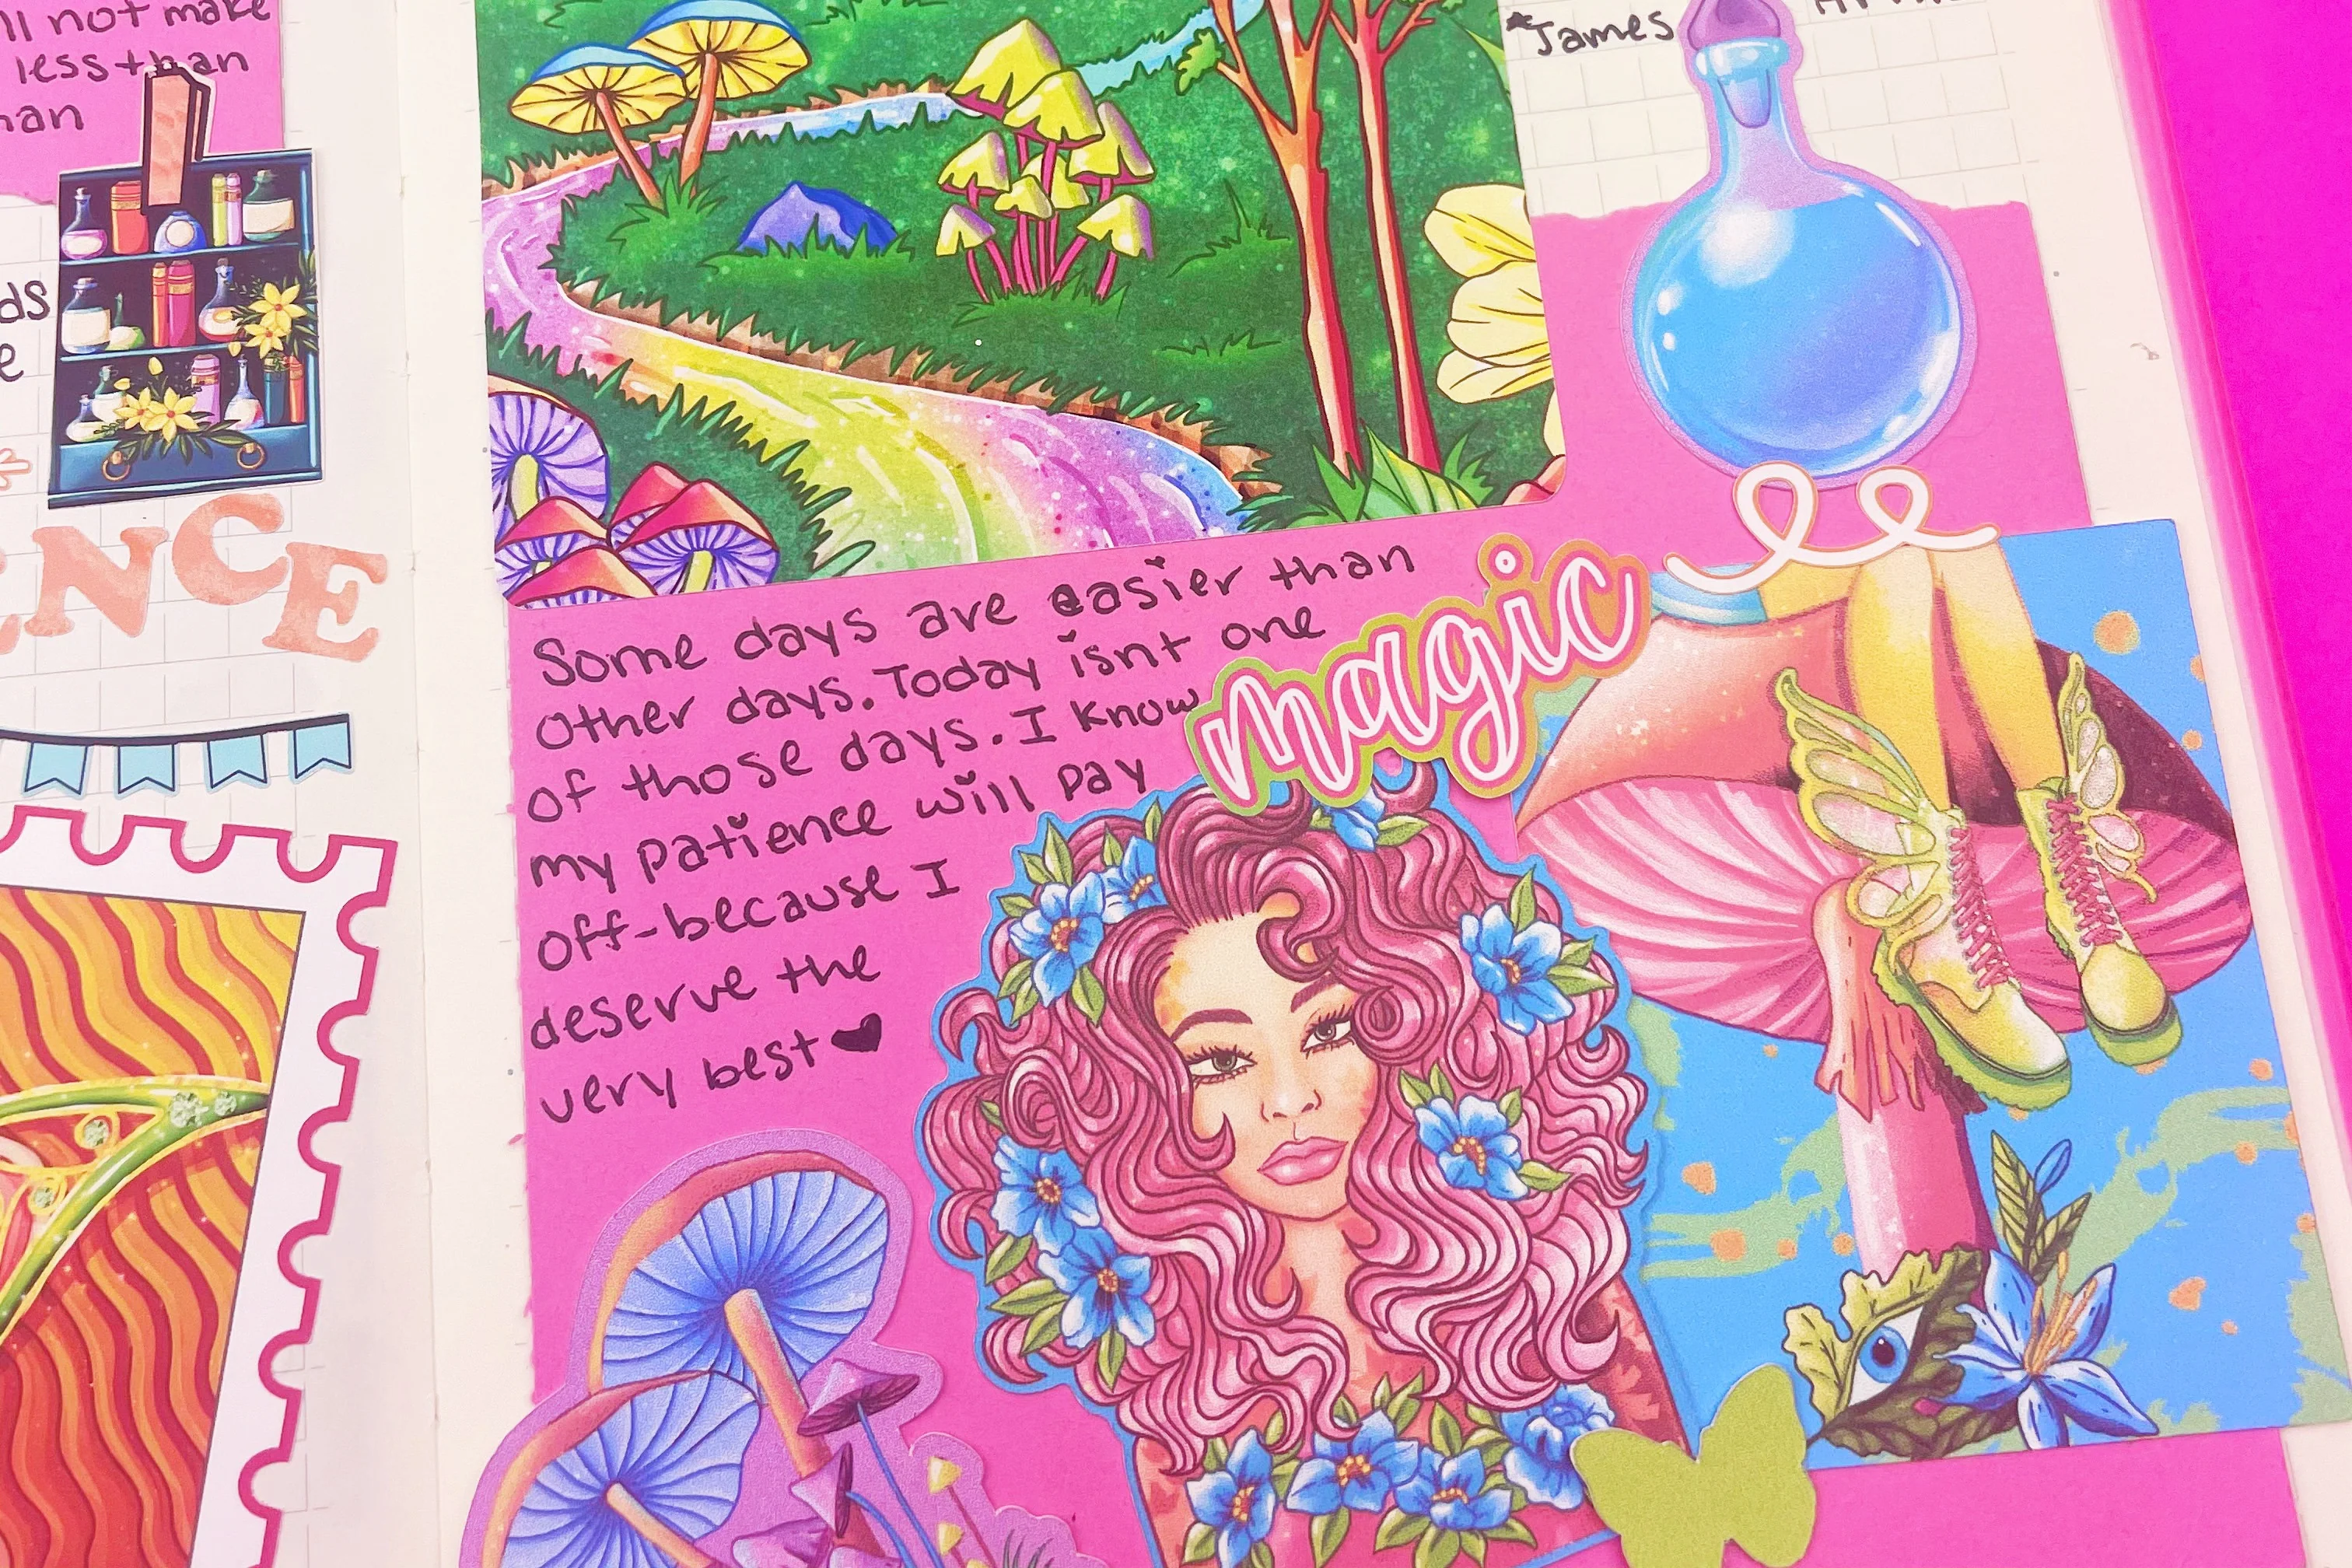 not make
less than
ENCE
James
Some days are easier than
other days. Today isnt one
of those days. I know
my patience will pay
off-because I
deserve the
very best ♥
magic